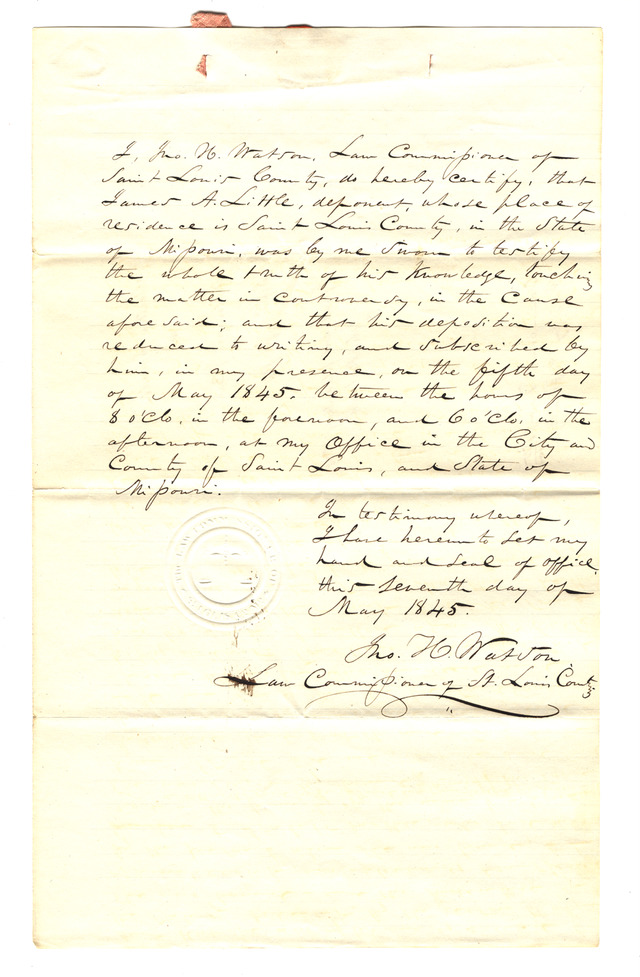 I, Jno. H. Watson, Law Commissioner of
Saint Louis County, do hereby certify, that
James A. Little, deponent, whose place of
residence is Saint Louis County, in the State
of Missouri, was by me sworn to testify
the whole truth of his knowledge, touching
the matter in controversy, in the Cause
aforesaid; and that his deposition was
reduced to writing, and subscribed by
him, in my presence, on the fifth day
of May 1845. between the hours of
8 o'clo. in the forenoon, and 6 o'clo. in the
afternoon, at my Office in the City and
County of Saint Louis, and State of
Missouri.
In testimony whereof,
I have hereunto set my
hand and seal of office,
this seventh day of
May 1845.
Jno. H. Watson,
Law Commissioner of St. Louis County